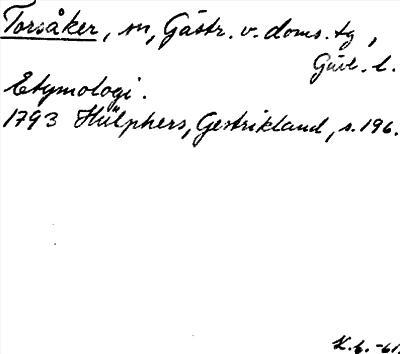 Torsåker, sn, Gästr. v. doms. tg,
Gävl. l.
Etymologi.
1793 Hülphers, Gestrikland, s. 196.
K.h. -61.